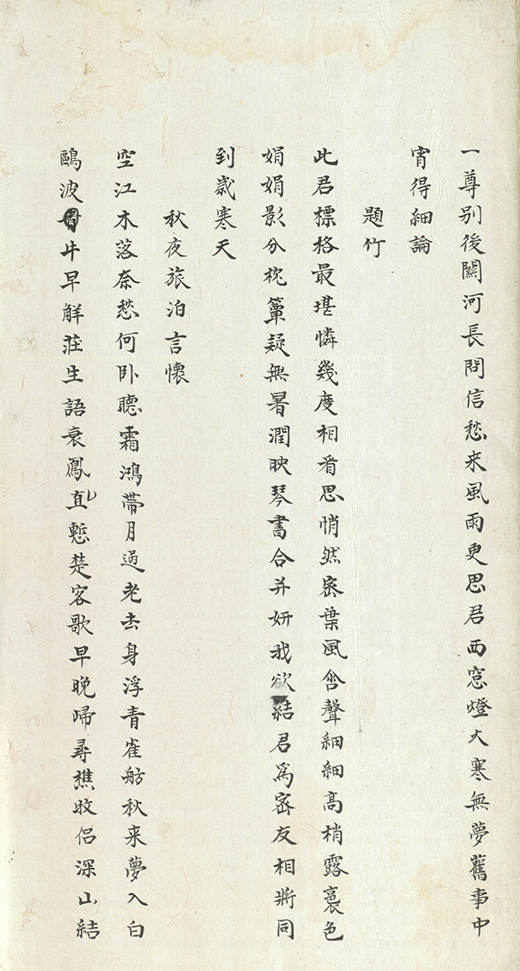 一尊別後關河長問信愁来風雨更思君西窓燈火寒無夢舊事中
宵得細論
題竹
此君標格最堪憐幾度相看思悄然密葉風含聲細細高梢露裛色
娟娟影分枕簟疑無暑潤映琴書合并妍我欲結君爲密友相將同
到歲寒天
秋夜旅泊言懷
空江木落奈愁何卧聽霜鴻帶月過老去身浮青雀舫秋来夢入白
鷗波牛早解莊生語衰鳳直慙楚客歌早晚歸尋樵牧侶深山結